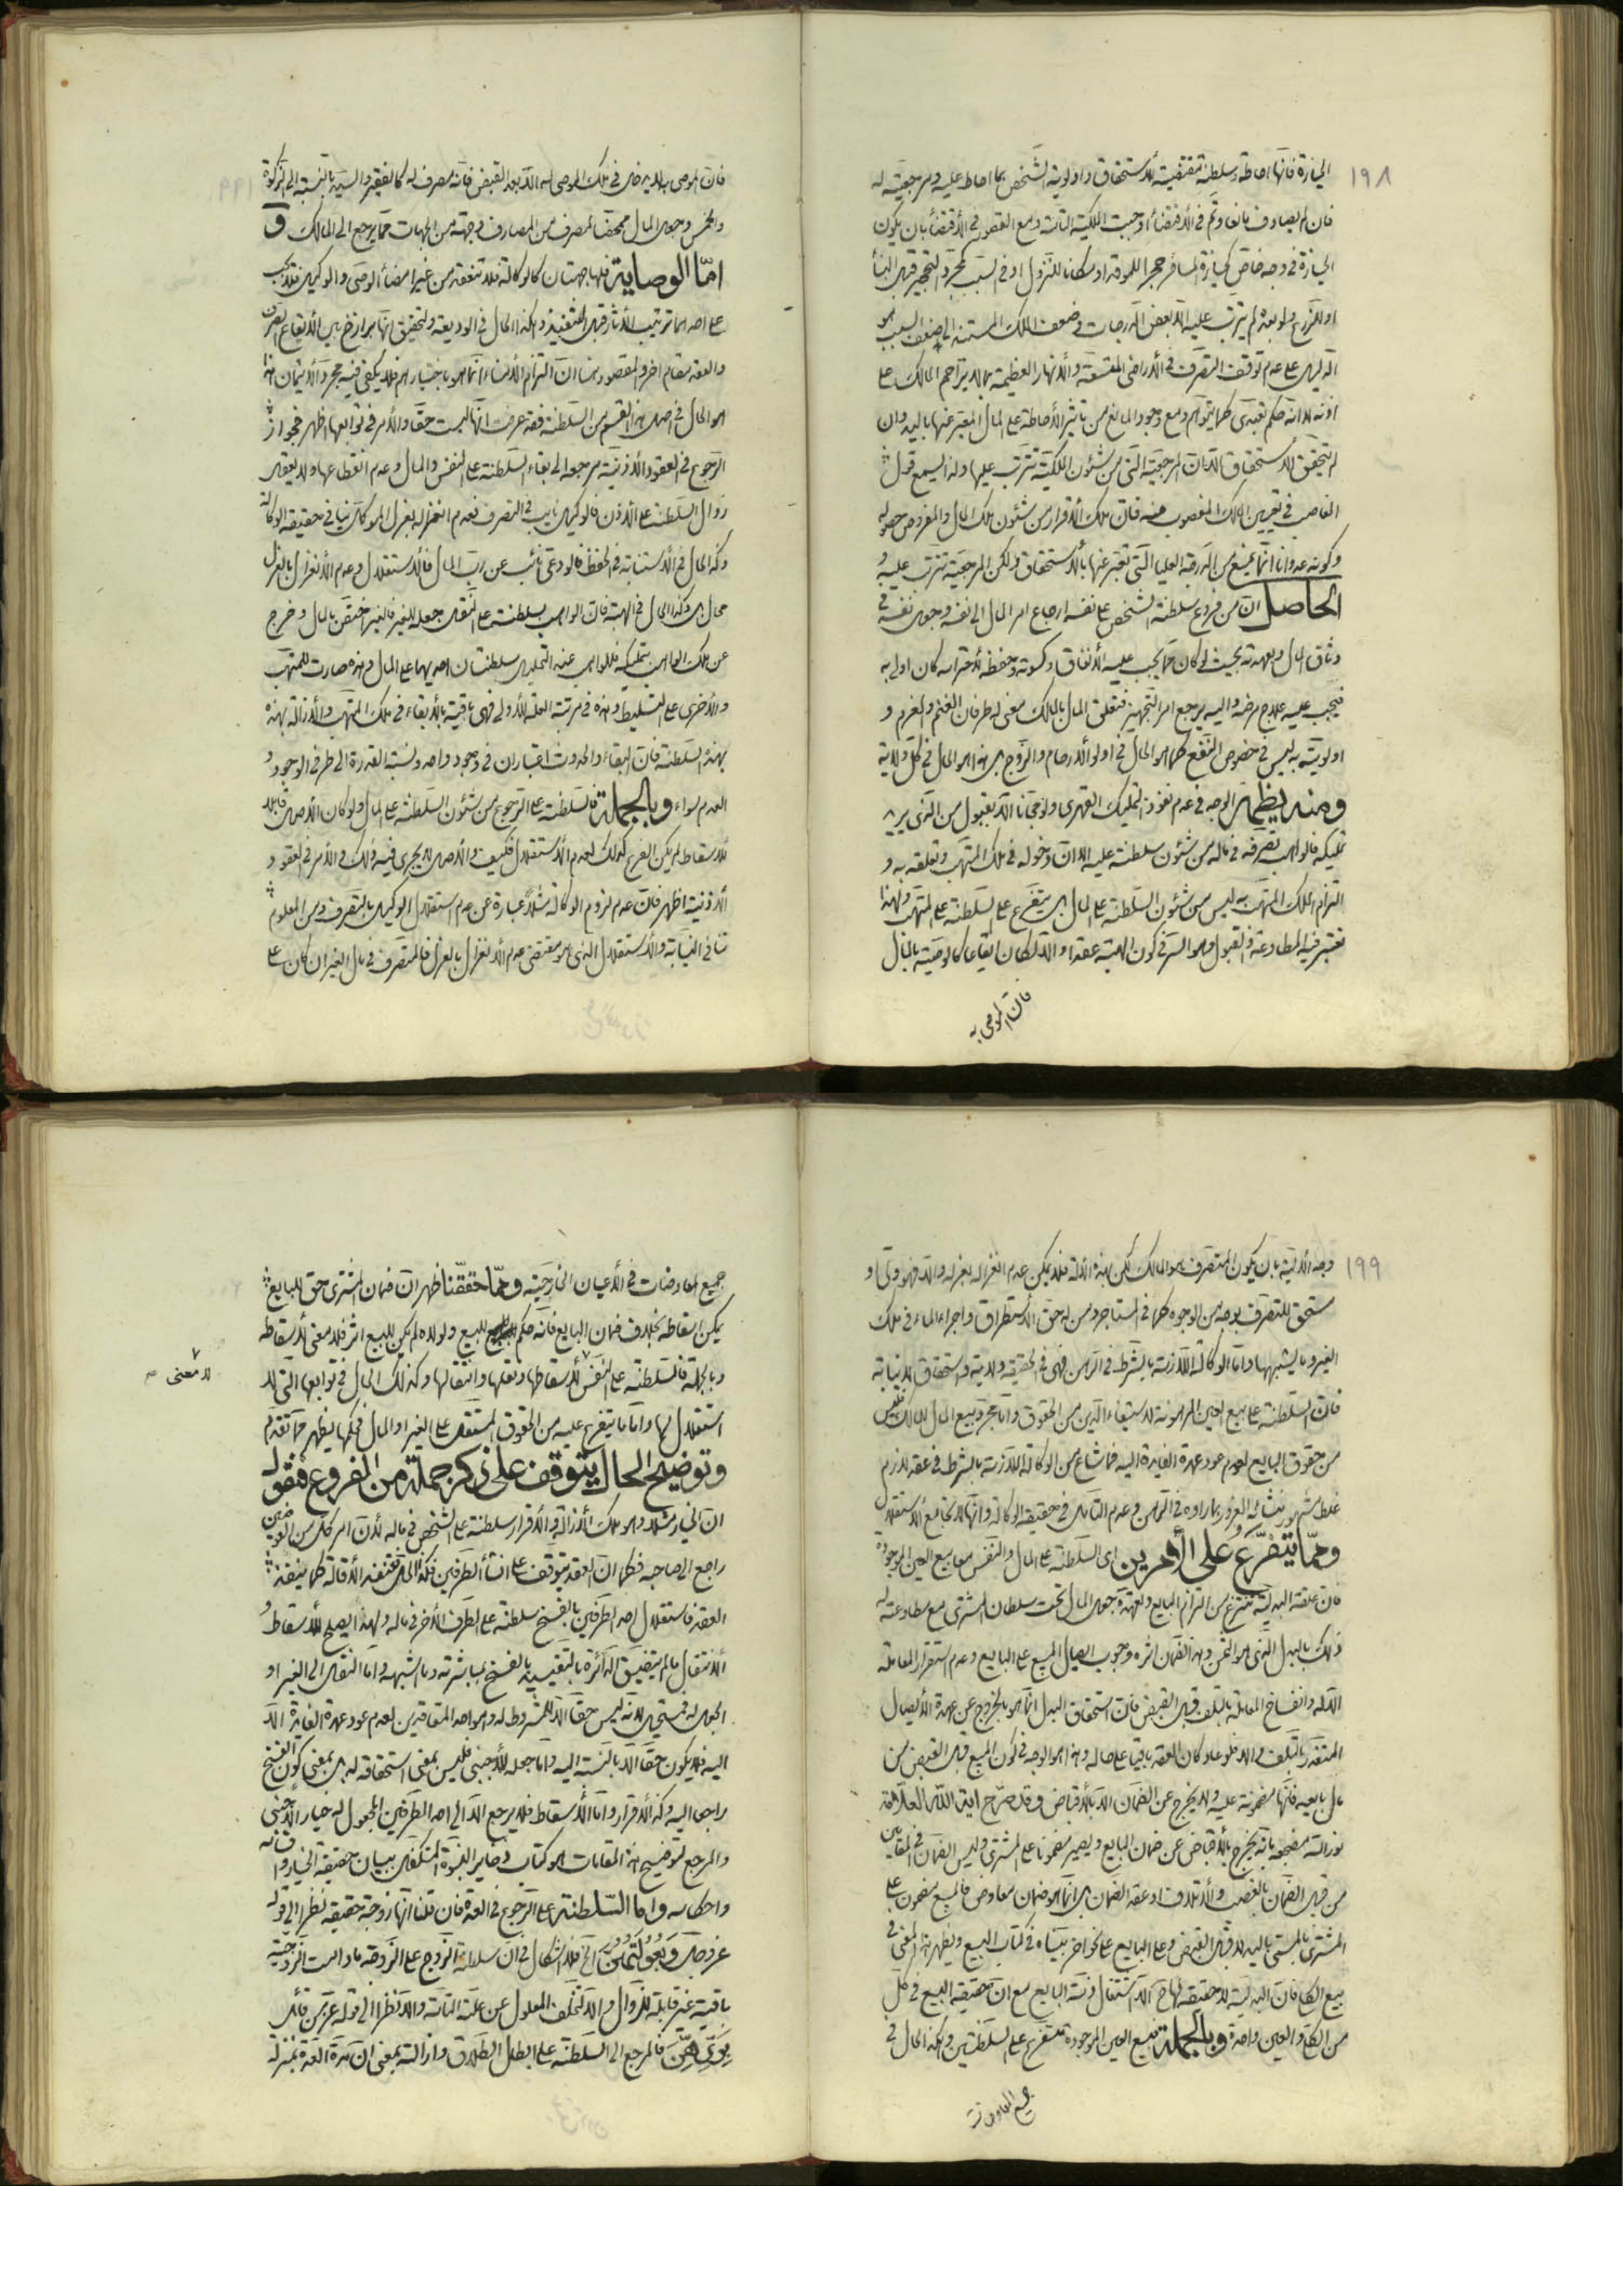 ١٩٨
الحيازة فانها احاطة وسلطنة مقتضية للاستحقاق واولوية الشخص بما احاط عليه ومرجعيته له
فان لم يصادف مانعا وتم في الاقتضاء اوجبت الملكية التامة ومع القصور في الاقتضاء بان يكون
الحيازة في وجه خاص كحيازة المسافر حجرا للموقد او مكانا للنزول او في السبب كمجرد التحجير قبل البناء
او الزرع ولو بعد لم يترتب عليه الا بعض الدرجات في ضعف الملك المستند الى ضعف السبب هو
الدليل على عدم توقف التصرف في الاراضي المتسعة والانهار العظيمة بما لا يزاحم المالك على
اذنه لا انه حكم تعبدي كما يتوهم ومع وجود المانع من تاثير الاحاطة على المال المعبر عنها باليد وان
لم يتحقق الاستحقاق الا ان المرجعية التي من شئون الملكية تترتب عليها ولذا يسمع قول
الغاصب في تعيين المالك المغصوب منه فان ملك الاقرار من شئون ملك المال والمفروض حصوله
وكونه عدوانا انما يمنع من الدرجة العليا التي تعبر عنها بالاستحقاق ولكن المرجعية تترتب عليه و
الحاصل ان من فروع سلطنة الشخص على نفسه ارجاع امر المال الى نفسه وجعل نفسه في
وثاق المال وبعهدته بحيث لو كان مما يجب عليه الانفاق وكسوته وحفظه لاحترامه كان اولى به
فيجب عليه علاج مرضه واليه يرجع امر التجهيز فتعلق المال بالمالك معنى له طرفان الغنم والغرم و
اولويته به ليس في خصوص النفع كما هو الحال في اولو الارحام والزوج بل هذا هو الحال في كل ولاية
ومنه يظهر الوجه في عدم نفوذ التمليك القهري ولو مجانا الا بقبول من الذي يريد
تمليكه فالواهب تصرفه في ماله من شئون سلطنته عليه الا ان دخوله في ملك المتهب وتعلقه به و
التزام الملك المتهب به ليس من شئون السلطنة على المال بل يتفرع على السلطنة على المتهب ولهذا
تعتبر فيه المطاوعة والقبول وهو السر في كون الهبة عقدا والا لكان ايقاعا كالوصية بالمال
فان الموصى به
فان الموصى به لا يدخل في ملك الموصى له الا بعد القبض فانه مصرف له كالفقير والسيد بالنسبة الى الزكوة
والخمس وجعل المال محضا لمصرف من المصارف وجهة من الجهات مما يرجع الى المالك و
اما الوصاية فلها جهتان كالوكالة فلا تنعقد من غير امضاء الوصي والوكيل فقد يجب
على احدهما ترتيب الاثار قبل التنفيذ وهكذا الحال في الوديعة والتحقيق انها برازخ بين الايقاع الصرف
والعقد مقام اخر والمقصود هنا ان التزام الامناء انما هو باختيارهم فلا يكفي فيه مجرد الائتمان هذا
هو الحال في اصل هذا القسم من السلطنة فقد عرفت انها ليست حقا والامر في توابعها اظهر فجواز
الرجوع في العقود الاذنية مرجعه الى بقاء السلطنة على النفس والمال وعدم انقطاعها ولا يعقل
زوال السلطنة على الاذن فالوكيل نايب في التصرف فعدم انعزاله بعزل الموكل ينافي حقيقة الوكالة
وكذا الحال في الاستنابة في الحفظ فالودعي نائب عن رب المال فالاستقلال وعدم الانعزال بالعزل
محال بل وكذا الحال في الهبة فان الواهب بسلطنته على النقل جعله للغير فالغير اختص بالمال وخرج
عن ملك الواهب بتمليكه فللواهب عند التحليل سلطنتان احديهما على المال وهذه صارت للمتهب
والاخرى على التسليط وهذه في مرتبة العلة للاولى فهي باقية بالابقاء في ملك المتهب والازالة بهذه
بهذه السلطنة فان البقاء والحدوث اعتباران في وجود واحد ونسبة القدرة الى طرفي الوجود و
العدم سواء وبالجملة فالسلطنة على الرجوع من شئون السلطنة على المال ولو كان الاصل قابلا
للاسقاط لم يكن الفرع كذلك لعدم الاستقلال فكيف والاصل لا يجري فيه ذلك والامر في العقود
الاذنية اظهر فان عدم لزوم الوكالة مثلا عبارة عن عدم استقلال الوكيل بالتصرف ومن المعلوم
تنافي النيابة والاستقلال الذي هو مقتضى عدم الانعزال بالعزل فالمتصرف في مال الغير ان كان على
١٩٩
وجه الالية بان يكون المتصرف هو المالك لكن بهذه الالة فلا يمكن عدم انعزاله بعزله والا فهو ولي او
مستحق للتصرف بوجه من الوجوه كما في المستاجر ومن له حق الاستطراق واجراء الماء في ملك
الغير وما يشبهها واما الوكالة اللازمة بالشرط في الرهن فهي في الحقيقة ولاية واستحقاق لا نيابة
فان السلطنة على بيع العين المرهونة لاستيفاء الدين من الحقوق واما مجرد بيع المال للمالك فليس
من حقوق البايع لعدم عود عهدة الفايدة اليه فما شاع من الوكالة اللازمة بالشرط في عقد لازم
غلط مشهور منشائه الغرور بما راوه في الرهن وعدم التامل في حقيقة الوكالة وانها لا تجامع الاستقلال
ومما يتفرع على الامرين اى السلطنة على المال والنفس معا بيع العين الموجودة
فان علقة البدلية تنتزع من التزام البايع وتعهده وجعل المال تحت سلطان المشتري مع مطاوعته له
ذلك بالبدل الذي هو الثمن وهذا الضمان اثره وجوب ايصال المبيع على البايع وعدم استقرار المعاملة
الا له وانفساخ المعاملة بالتلف قبل القبض فان استحقاق البدل انما هو بالخروج عن عهدة الايصال
المتعذر بالتلف والا فلو كان العقد باقيا على حاله وهذا هو الوجه في كون المبيع قبل القبض من
مال بايعه فانها مضمونة عليه ولا يخرج عن الضمان الا بالاقباض وقد صرح اية الله العلامة
نور الله مضجعه بانه يخرج بالاقباض عن ضمان البايع ويصير مضمونا على المشتري وليس الضمان في المقامين
من قبل الضمان بالغصب والاتلاف او عقد الضمان بل انما هو ضمان معاوضي فالمبيع مضمون على
المشتري بالمسمى باليد لا قبل القبض وعلى البايع على نحو اخر بيناه في كتاب البيع ويظهر هذا المعنى في
بيع الكلي فان البدلية لا حقيقة لها ح الا اشتغال ذمة البايع مع ان حقيقة البيع في كل
من الكلي والعين واحدة وبالجملة فبيع العين الموجودة متفرع على السلطنتين وهكذا الحال في
جميع المعاوضات
جميع المعاوضات في الاعيان الخارجية ومما حققنا ظهر ان ضمان المشتري حق للبايع
يمكن اسقاطه بخلاف ضمان البايع فانه حكم للبيع ولولاه لم يكن للبيع اثر فلا معنى لاسقاطه
وبالجملة فالسلطنة على النفس لاسقاطها ونقلها وانتقالها وكذلك الحال في توابعها التي لا
لا معنى صح
استقلال لها واما ما يتفرع عليه من الحقوق المستقل على الغير او المال فحكمها يظهر مما تقدم
وتوضيح الحال يتوقف على ذكر جملة من الفروع فنقول
ان الخيار مثلا وهو ملك الازالة والاقرار سلطنة على الشخص في ماله لان امر كل من العوضين
راجع الى صاحبه فكما ان العقد يتوقف على انشاء الطرفين فكذا الحال فتنفذ الاقالة كما ينفذ
العقد فاستقلال احد الطرفين بالفسخ سلطنة على الطرف الاخر في ماله ولهذا يصلح للاسقاط و
الانتقال ما لم يتضيق الدائرة بالتقييد بالفسخ بمباشرته وما اشبهه واما النقل الى الغير او
الجعل له فمستحيل لانه ليس حقا الا للمشروط له وهو احد المتعاقدين لعدم عود عهدة الفايدة الا
اليه فلا يكون حقا الا بالنسبة اليه واما جعله للاجنبي فليس بمعنى استحقاقه له بل بمعنى كون الفسخ
راجعا اليه وكذا الاقرار واما الاسقاط فلا يرجع الا الى احد الطرفين المجعول له خيار الاجنبي
والمرجع لتوضيح هذه المقامات هو كتاب ذخاير النبوة المتكفل ببيان حقيقة الخيار واقسامه
واحكامه واما السلطنة على الرجوع في العدة فان قلنا انها زوجة حقيقة نظرا الى قوله
عز وجل وَبُعُولَتُهُنَّ الخ فلا اشكال في ان سلطنة الزوج على الزوجة ما دامت الزوجية
باقية غير قابلة للزوال والا لتخلف المعلول عن علته التامة والا نظرا الى قوله عز من قائل
بِرَدِّهِنَّ فالمرجع الى السلطنة على ابطال الطلاق وازالته بمعنى ان مدة العدة بمنزلة